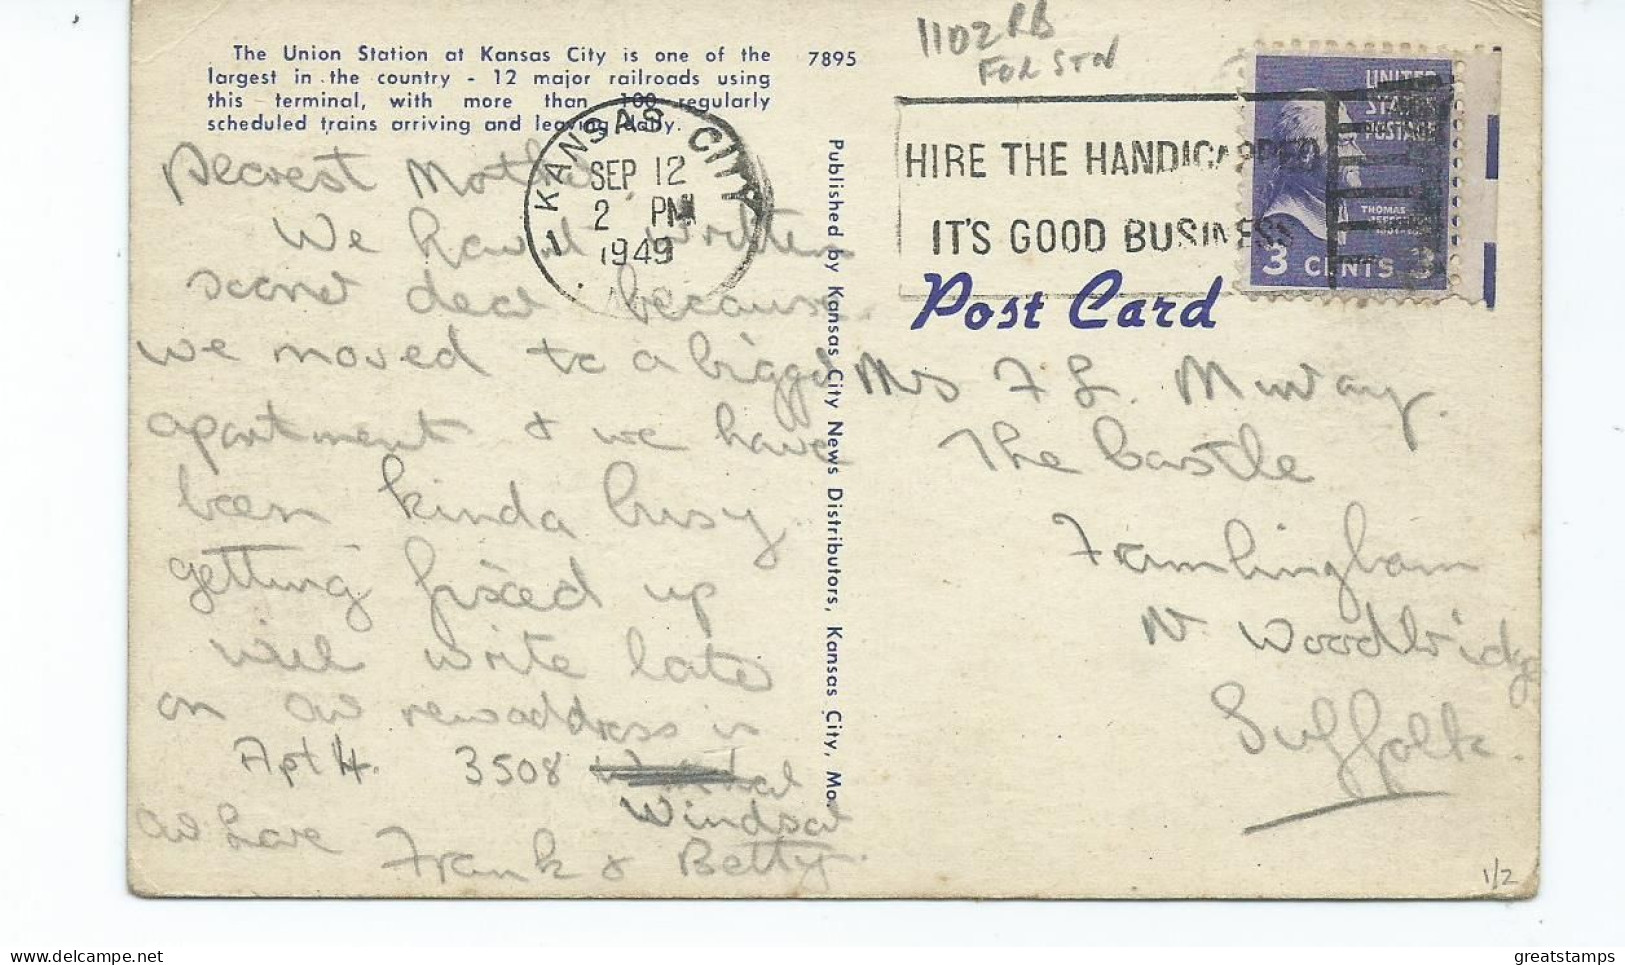 The Union Station at Kansas City is one of the
largest in the country - 12 major railroads using
this terminal, with more than 100 regularly
scheduled trains arriving and leaving daily.
7895
1102 RB
FOR STN
KANSAS CITY
1
SEP 12
2 PM
1949
HIRE THE HANDICAPPED
IT'S GOOD BUSINESS
UNITED
STATES
POSTAGE
THOMAS
JEFFERSON
3 CENTS 3
Post Card
Published by Kansas City News Distributors, Kansas City, Mo.
Dearest Mother,
We havent written
sooner dear because
we moved to a bigger
apartment & we have
been kinda busy
getting fixed up
will write later
on our new address is
Apt 4. 3508
Windsor
our Love Frank & Betty.
Mrs F L Murray.
The Castle
Framlingham
Nr Woodbridge
Suffolk.
1/2
greatstamps